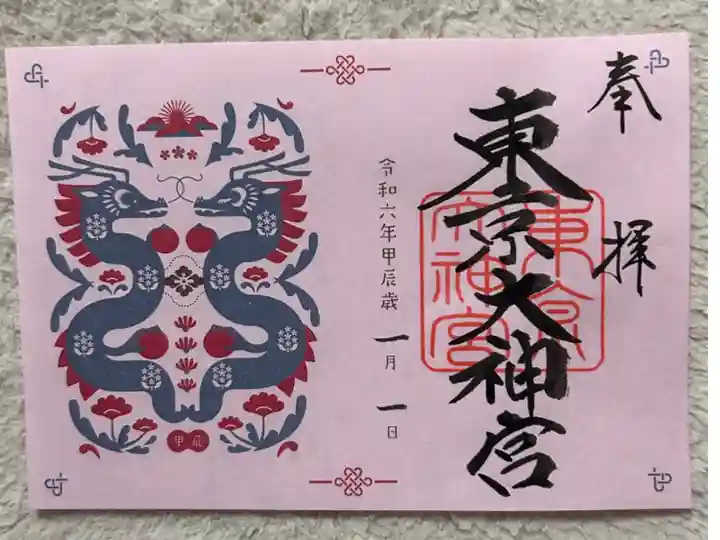 奉拝
東京大神宮
東京大神宮
令和六年甲辰歳 一月 一日
甲辰